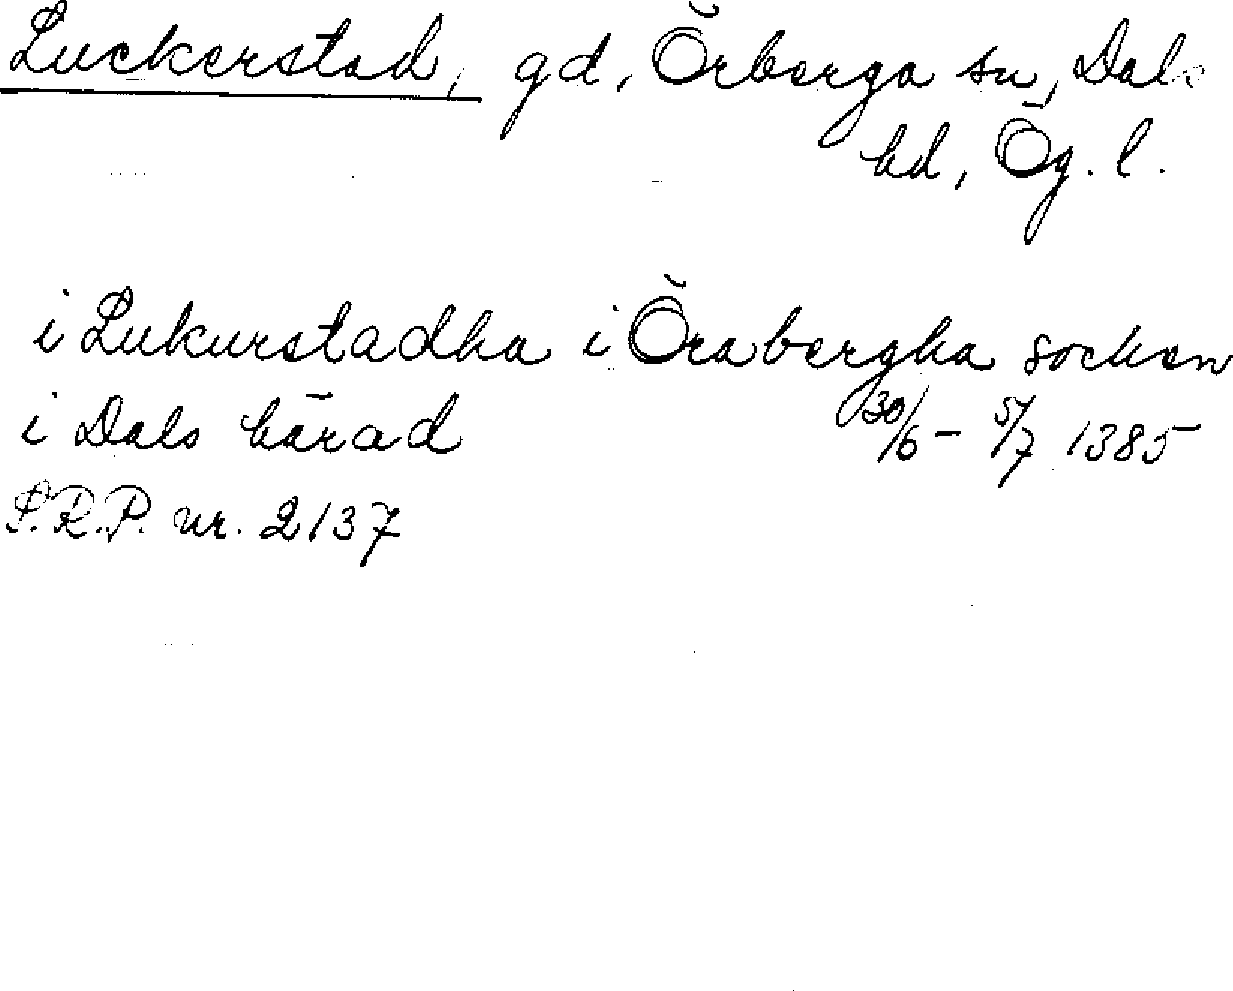 Luckerstad, gd, Örberga sn, Dals
hd, Ög. l.
i Lukurstadha i Örabergha socken
i Dals härad 30/6 - 5/7 1385
S.R.P. nr. 2137